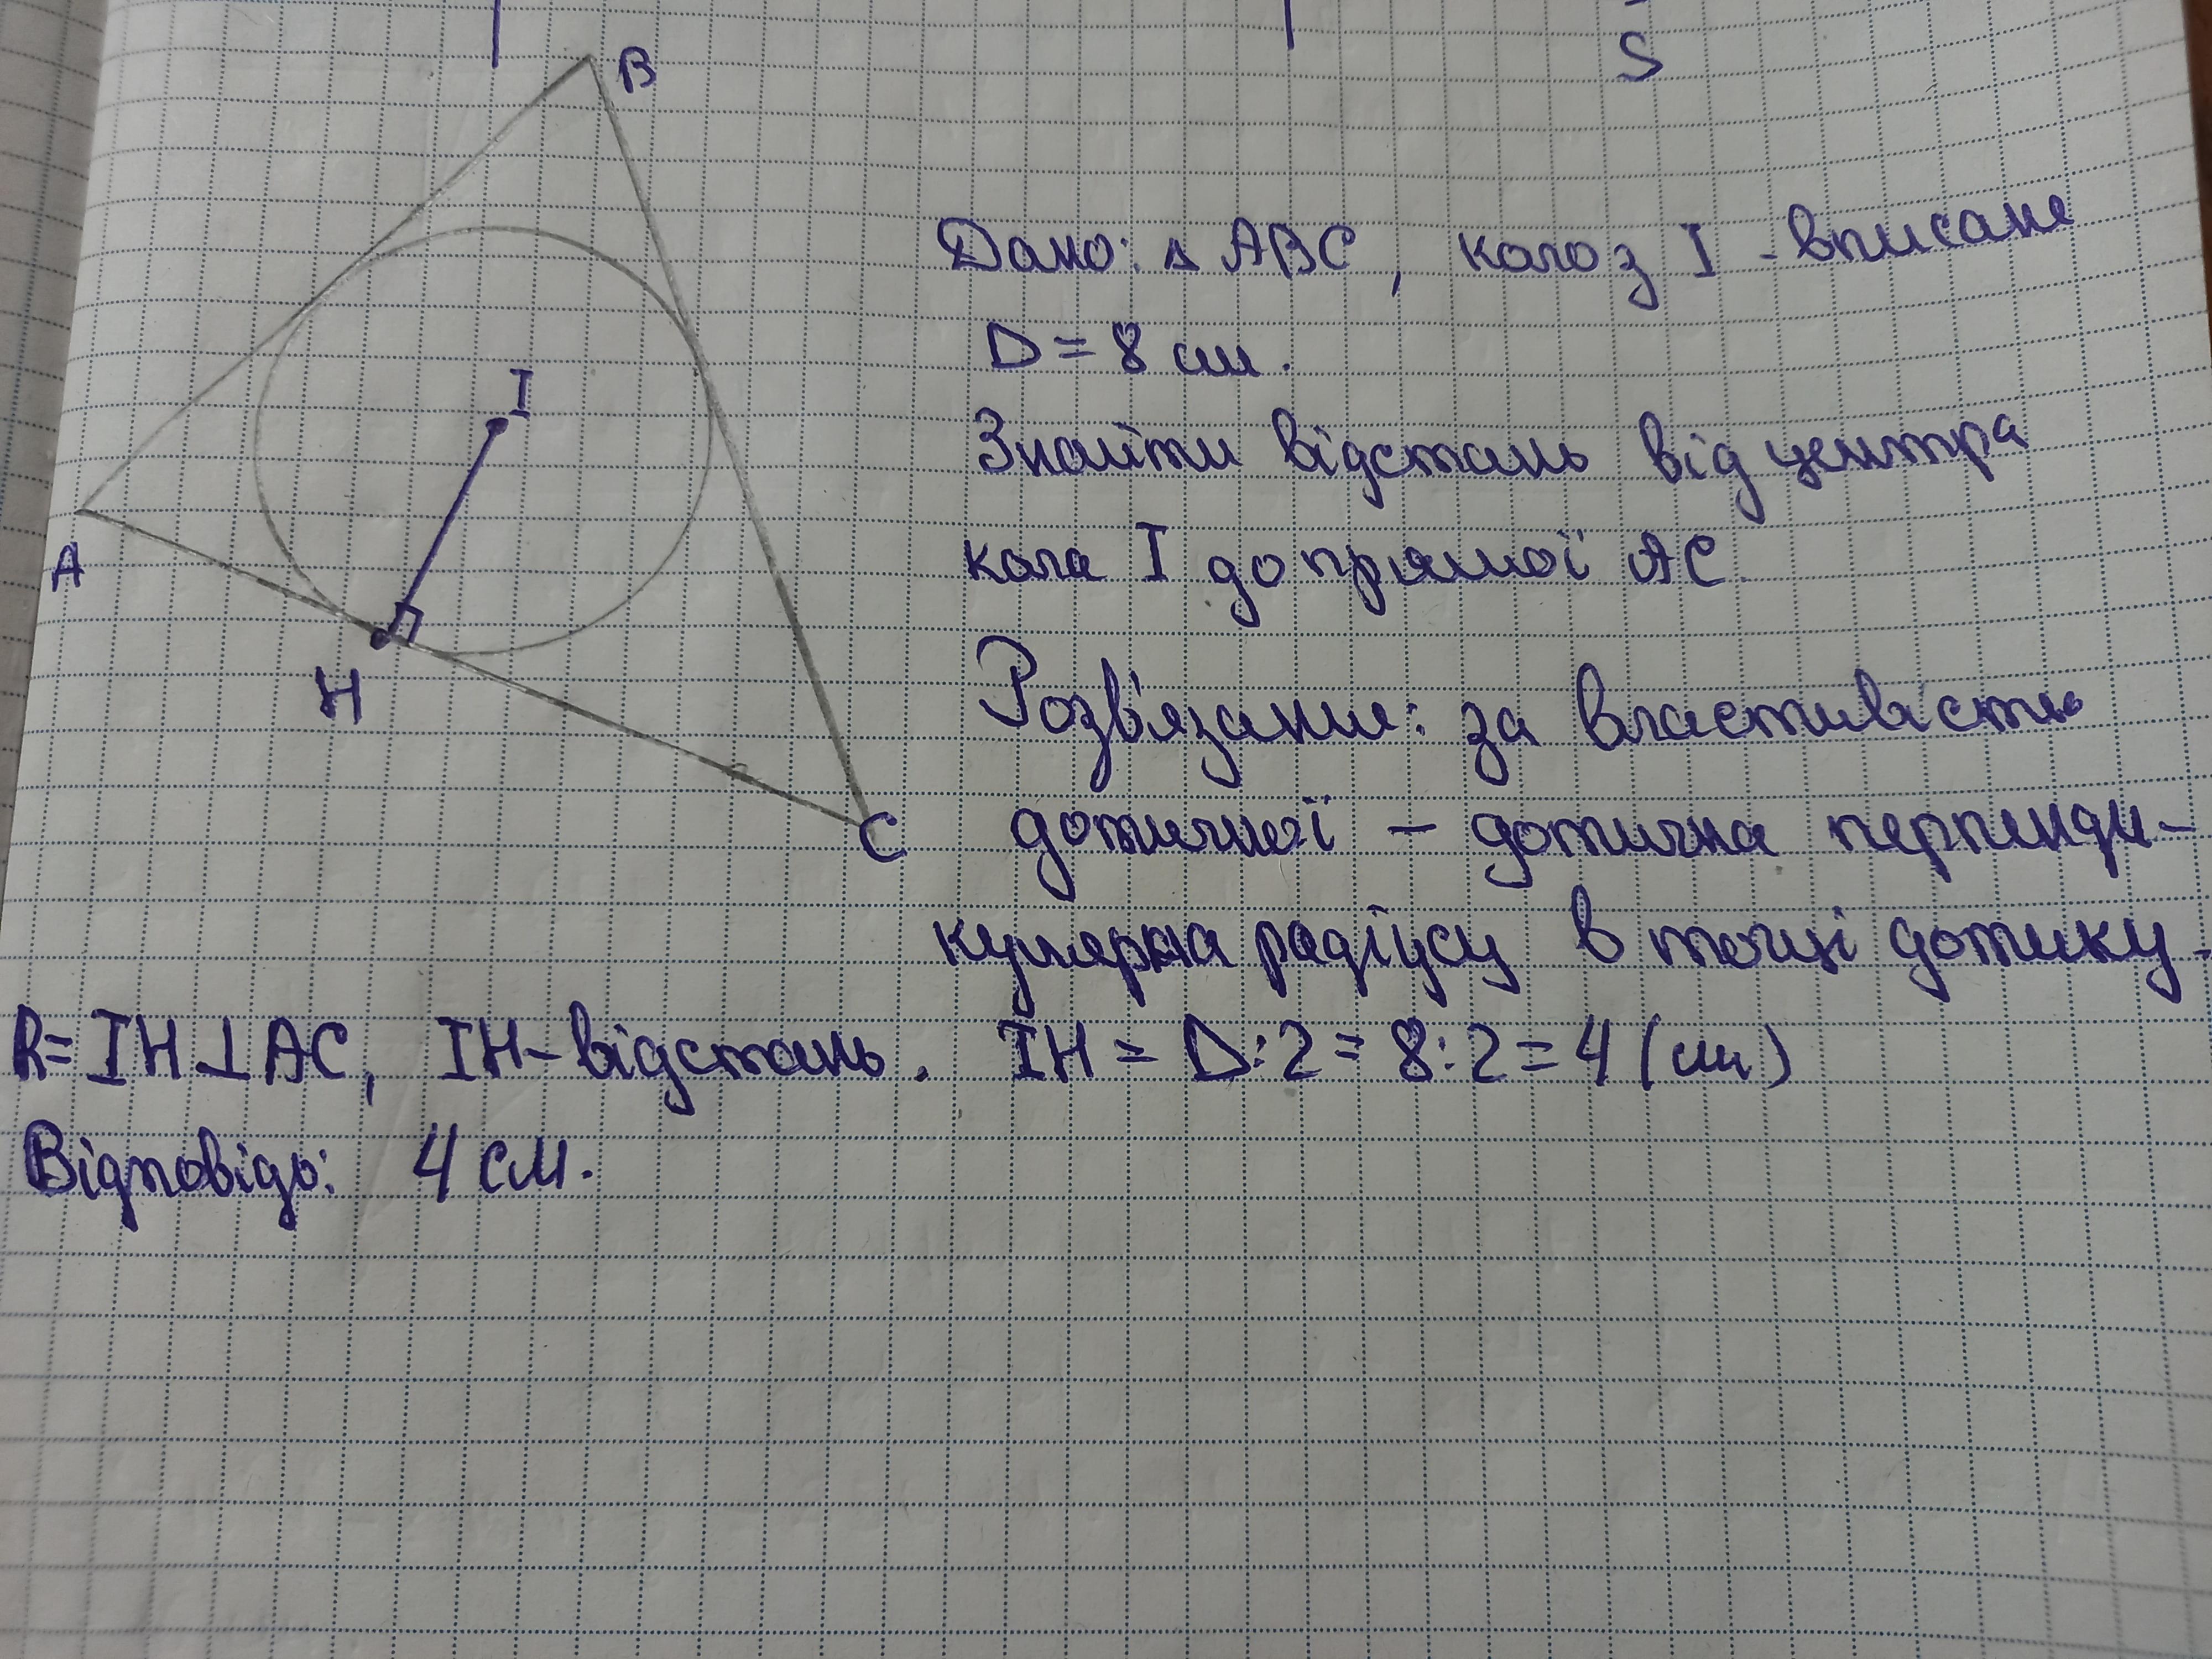 S
B
I
A
H
C
Дано: △ ABC, коло з I - вписане
D = 8 см.
Знайти відстань від центра
кола I до прямої AC.
Розв'язання: за властивістю
дотичної - дотична перпенди-
кулярна радіусу в точці дотику.
R = IH ⊥ AC, IH - відстань. IH = D:2 = 8:2 = 4 (см)
Відповідь: 4 см.